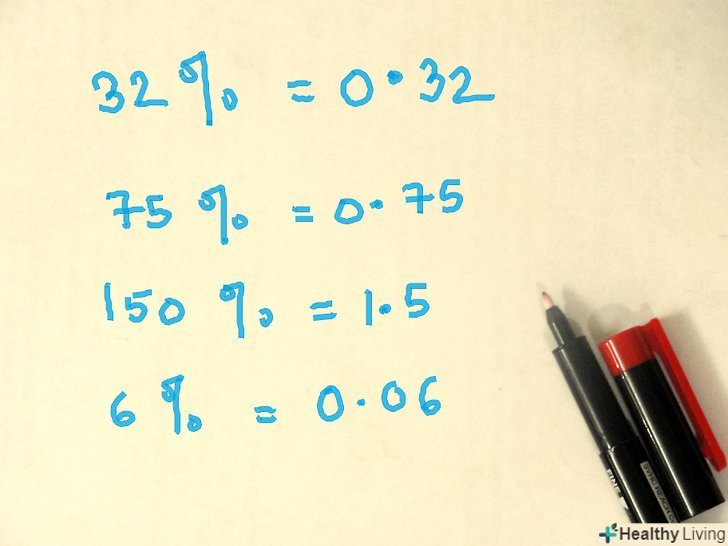 32% = 0.32
75% = 0.75
150% = 1.5
6% = 0.06
FINE
Healthy Living